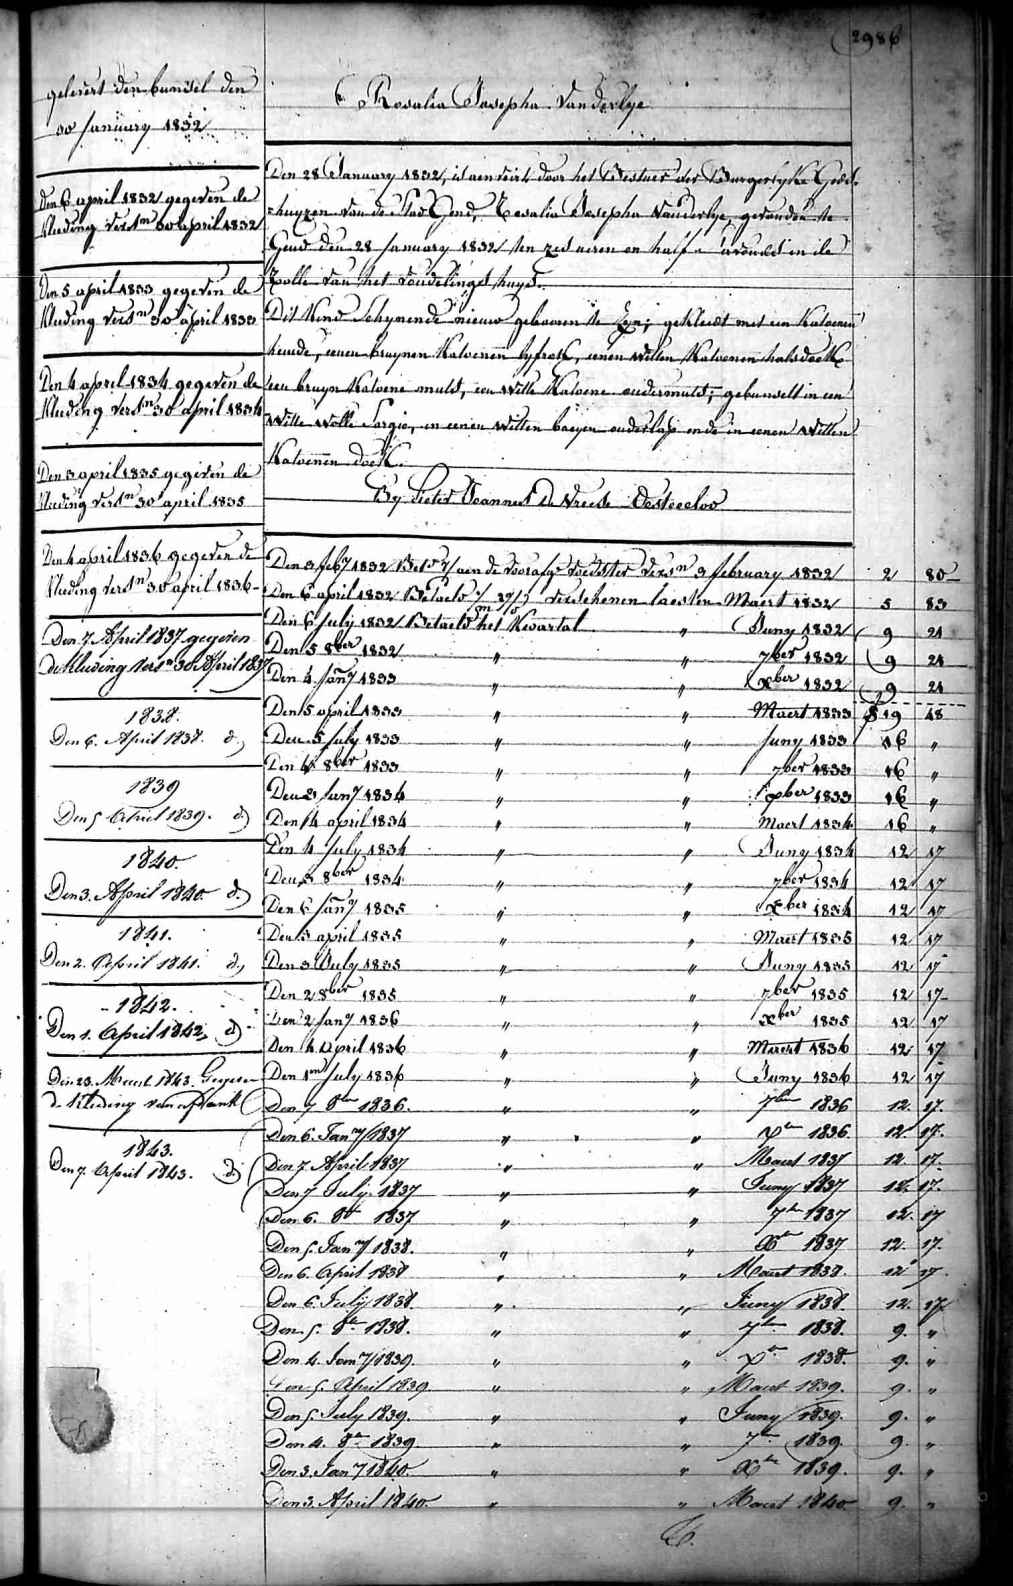 2986
gelevert den bunsel den
30 January 1832
Den 6 april 1832 gegeven de
kleeding versn 30 april 1832
Den 5 april 1833 gegeven de
kleeding versn 30 april 1833
Den 4 april 1834 gegeven de
kleeding versn 30 april 1834
Den 3 april 1835 gegeven de
kleeding versn 30 april 1835
Den 4 april 1836 gegeven de
kleeding versn 30 april 1836
Den 7 April 1837 gegeven
de kleeding versn 30 April 1837
1838.
Den 6. April 1838. d.
1839
Den 5 April 1839. d.
1840.
Den 3. April 1840. d.
1841.
Den 2. April 1841. d.
1842.
Den 1. April 1842, d.
Den 23. Maert 1843. Gegeven
de kleeding van
1843.
Den 7. April 1843. d.
Rosalia Josepha Vanderlye
Den 28 January 1832, is aenveirt door het Bestuer der Burgerlyke Godt-
huyzen van de Stad Gend, Rosalia Josepha Vanderlye, gevonden te
Gend den 28 January 1832 ten zes uren en half 's avonds in de
Rolle van het vondelingshuys.
Dit kind schynende nieuw gebooren te zyn; gekleedt met een katoenen
hemde, eenen bruynen katoenen lyfrok, eenen witten katoenen halsdoek
een bruyn katoene muts, een witte katoene ondermuts; gebunselt in een
witte wolle sargie, en eenen witten baeyen onderlap ende in eenen witten
katoenen doek.
By Pieter Joannes De Vreese Oosteecloo
Den 3 feby 1832 Bett aen de voorafge voedster versn 3 february 1832 2 80
Den 6 april 1832 Betaeld verschenen laesten Maert 1832 5 83
Den 6 July 1832 Betaeld het kwartael " Juny 1832 9 21
Den 5 8ber 1832 " " 7ber 1832 9 21
Den 4 Jany 1833 " " Xber 1832 9 21
Den 5 april 1833 " " Maert 1833 19 48
Den 5 July 1833 " " Juny 1833 16 "
Den 4 8ber 1833 " " 7ber 1833 16 "
Den 3 Jany 1834 " " Xber 1833 16 "
Den 4 april 1834 " " Maert 1834 16 "
Den 4 July 1834 " " Juny 1834 12 17
Den 3 8ber 1834 " " 7ber 1834 12 17
Den Jany 1835 " " Xber 1834 12 17
Den 3 april 1835 " " Maert 1835 12 17
Den 3 July 1835 " " Juny 1835 12 17
Den 2 8ber 1835 " " 7ber 1835 12 17
Den 2 Jany 1836 " " Xber 1835 12 17
Den 4 April 1836 " " Maert 1836 12 17
Den 1en July 1836 " " Juny 1836 12 17
Den 7 8er 1836. " " 7ber 1836 12. 17.
Den 6. Jany 1837 " " Xer 1836 12 17.
Den 7 April 1837 " " Maert 1837 12. 17.
Den 7 July 1837 " " Juny 1837 12. 17.
Den 6. 8er 1837 " " 7er 1837 12. 17
Den 5. Jany 1838. " " Xer 1837 12. 17.
Den 6. April 1838 " " Maert 1838. 12 17.
Den 6. July 1838. " " Juny 1838. 12. 17
Den 5. 8er 1838. " " 7er 1838. 9. "
Den 4. Jany 1839. " " Xer 1838. 9. "
Den 5. April 1839 " " Maert 1839. 9. "
Den 5. July 1839. " " Juny 1839. 9. "
Den 4. 8er 1839. " " 7er 1839. 9. "
Den 3. Jany 1840. " " Xer 1839. 9. "
Den 3. April 1840. " " Maert 1840. 9. "